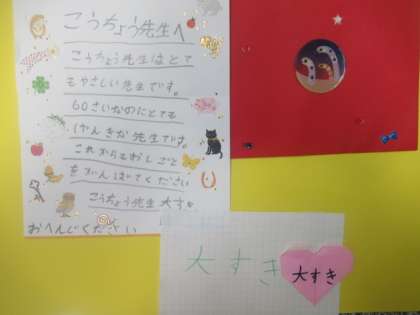 こうちょう先生へ
こうちょう先生はとて
もやさしい先生です。
60さいなのにとても
げんきな先生です。
これからもおしごと
をがんばってください
こうちょう先生大すき
おへんじください
大すき
大すき